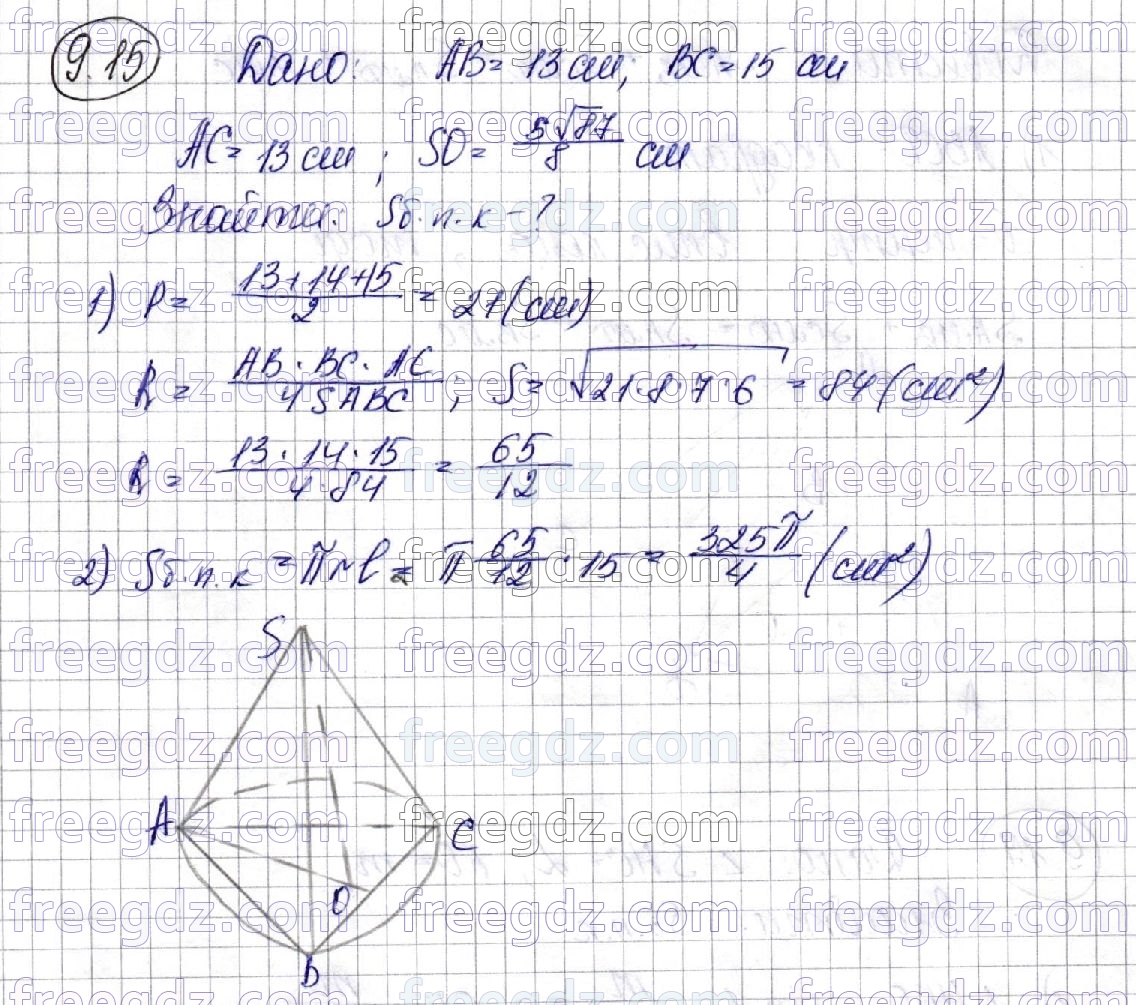 9.15 Дано: AB = 13 см; BC = 15 см
AC = 13 см; SO = 5√87/8 см
Знайти: Sб.п.к - ?
1) P = (13+14+15)/2 = 21 (см)
R = (AB · BC · AC)/(4 S ABC); S = √21·8·7·6 = 84 (см²)
R = (13 · 14 · 15)/(4 · 84) = 65/12
2) Sб.п.к = πrl = π 65/12 · 15 = 325π/4 (см²)
S
A
C
O
B
freegdz.com